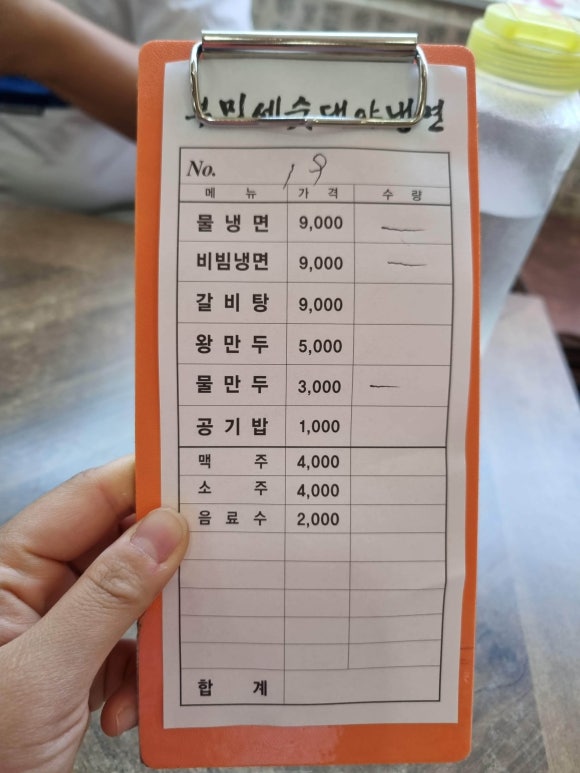 부밍세숫대야냉면
No. 19
메 뉴 가 격 수 량
물 냉 면 9,000 —
비빔냉면 9,000 —
갈 비 탕 9,000
왕 만 두 5,000
물 만 두 3,000 —
공 기 밥 1,000
맥 주 4,000
소 주 4,000
음 료 수 2,000
합 계